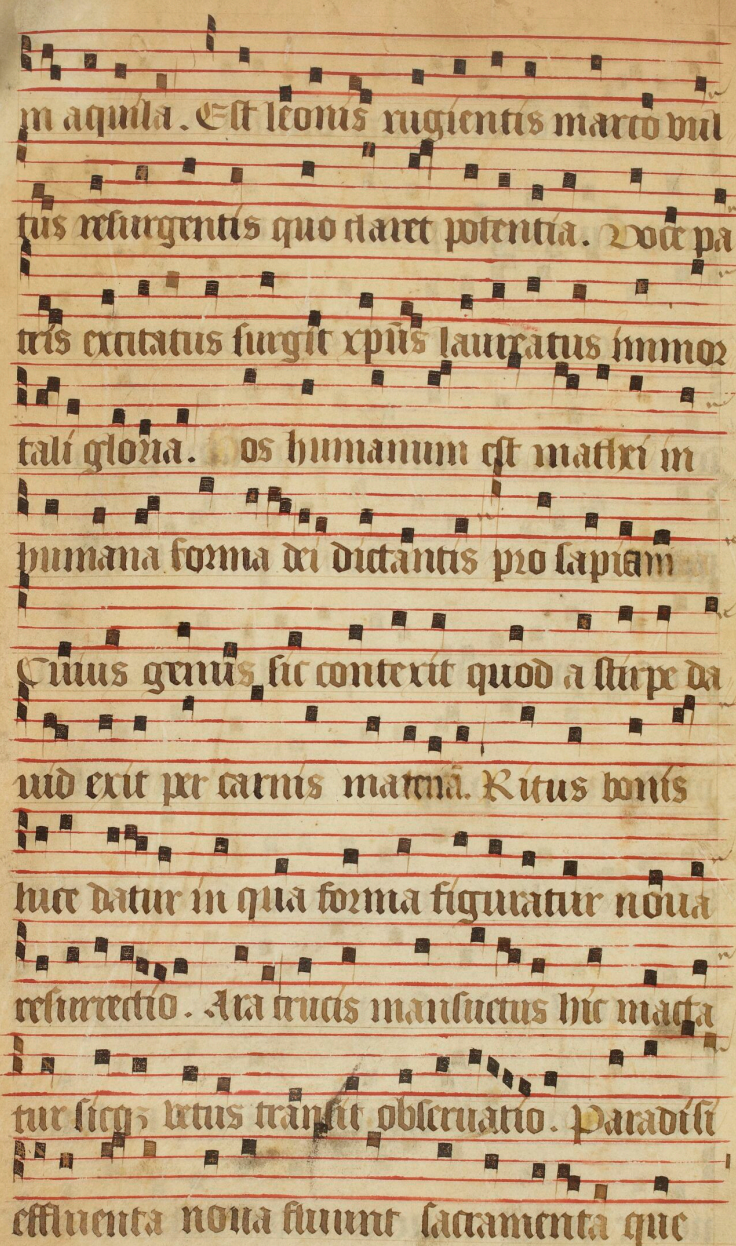 in aquila. Est leonis rugientis marco vul
tus resurgentis quo claret potentia. Voce pa
tris excitatus surgit xpūs laureatus immor
tali gloria. Os humanum est mathei in
humana forma dei dictantis pro sapiam
Cuius genus sic contexit quod a stirpe da
uid exit per carnis maternā. Ritus bouis
luce datur in qua forma figuratur noua
resurrectio. Ara crucis mansuetus hic macta
tur sicqꝫ vetus transit obseruatio. Paradisi
effluenta noua fluunt sacramenta que